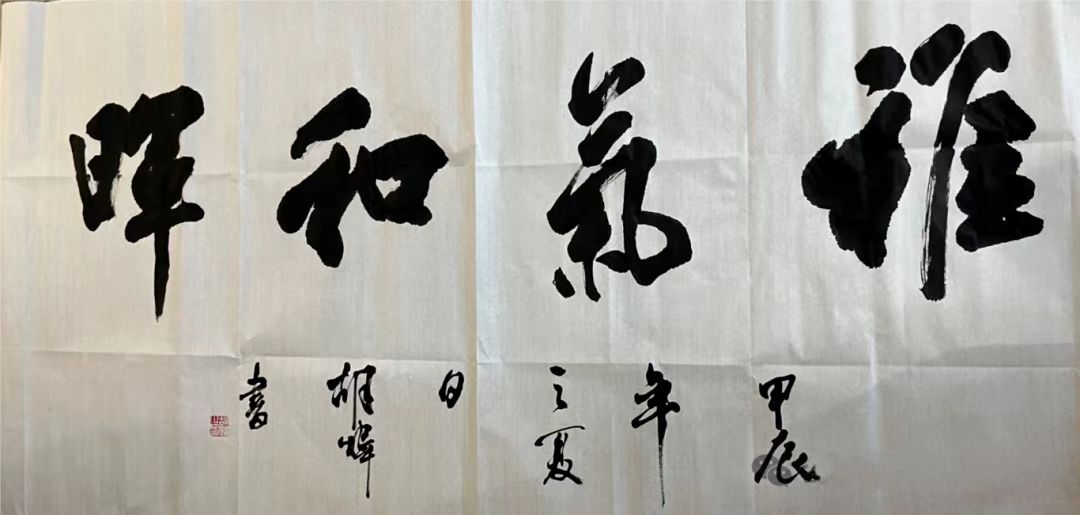 雅氣和暉
甲辰年之夏日胡煒書